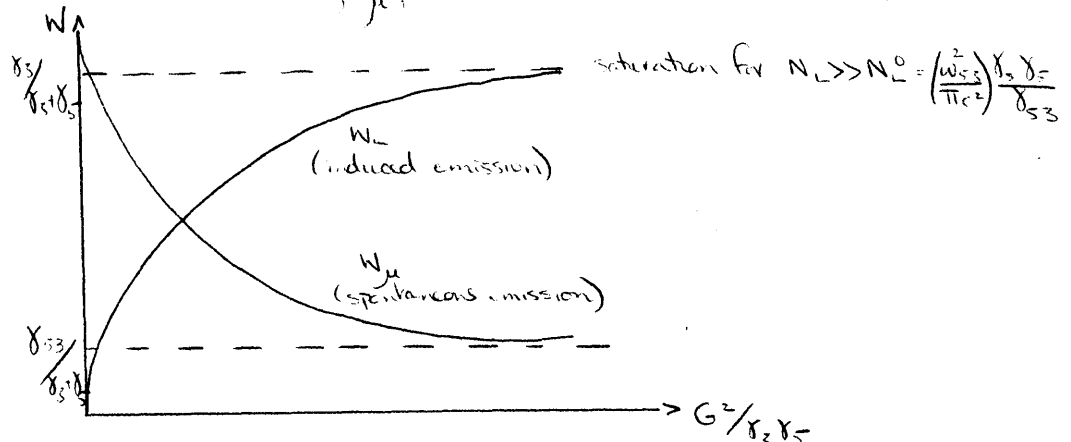 W
γ3/
γ3+γ5
saturation for N_L >> N_L^0 = (ω53^2/πc^2) γ3 γ5/γ53
W_L
(induced emission)
W_μ
(spontaneous emission)
γ53
/γ3+γ5
G^2/γ3 γ5